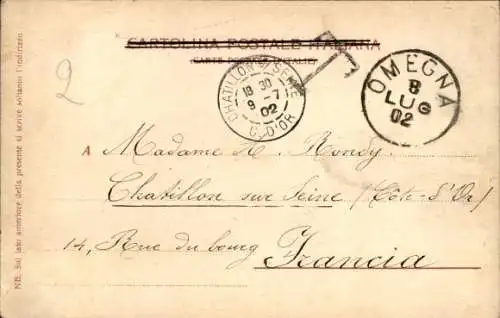 CARTOLINA POSTALE ITALIANA
(CARTE POSTALE D'ITALIE)
2
T
CHATILLON S SEINE
18 30
9 - 7
02
C. D'OR
OMEGNA
8
LUG
02
A Madame H. Rondy
Chatillon sur Seine (Côte-d'Or)
14, Rue du bourg Francia
NB. Sul lato anteriore della presente si scrive soltanto l'indirizzo